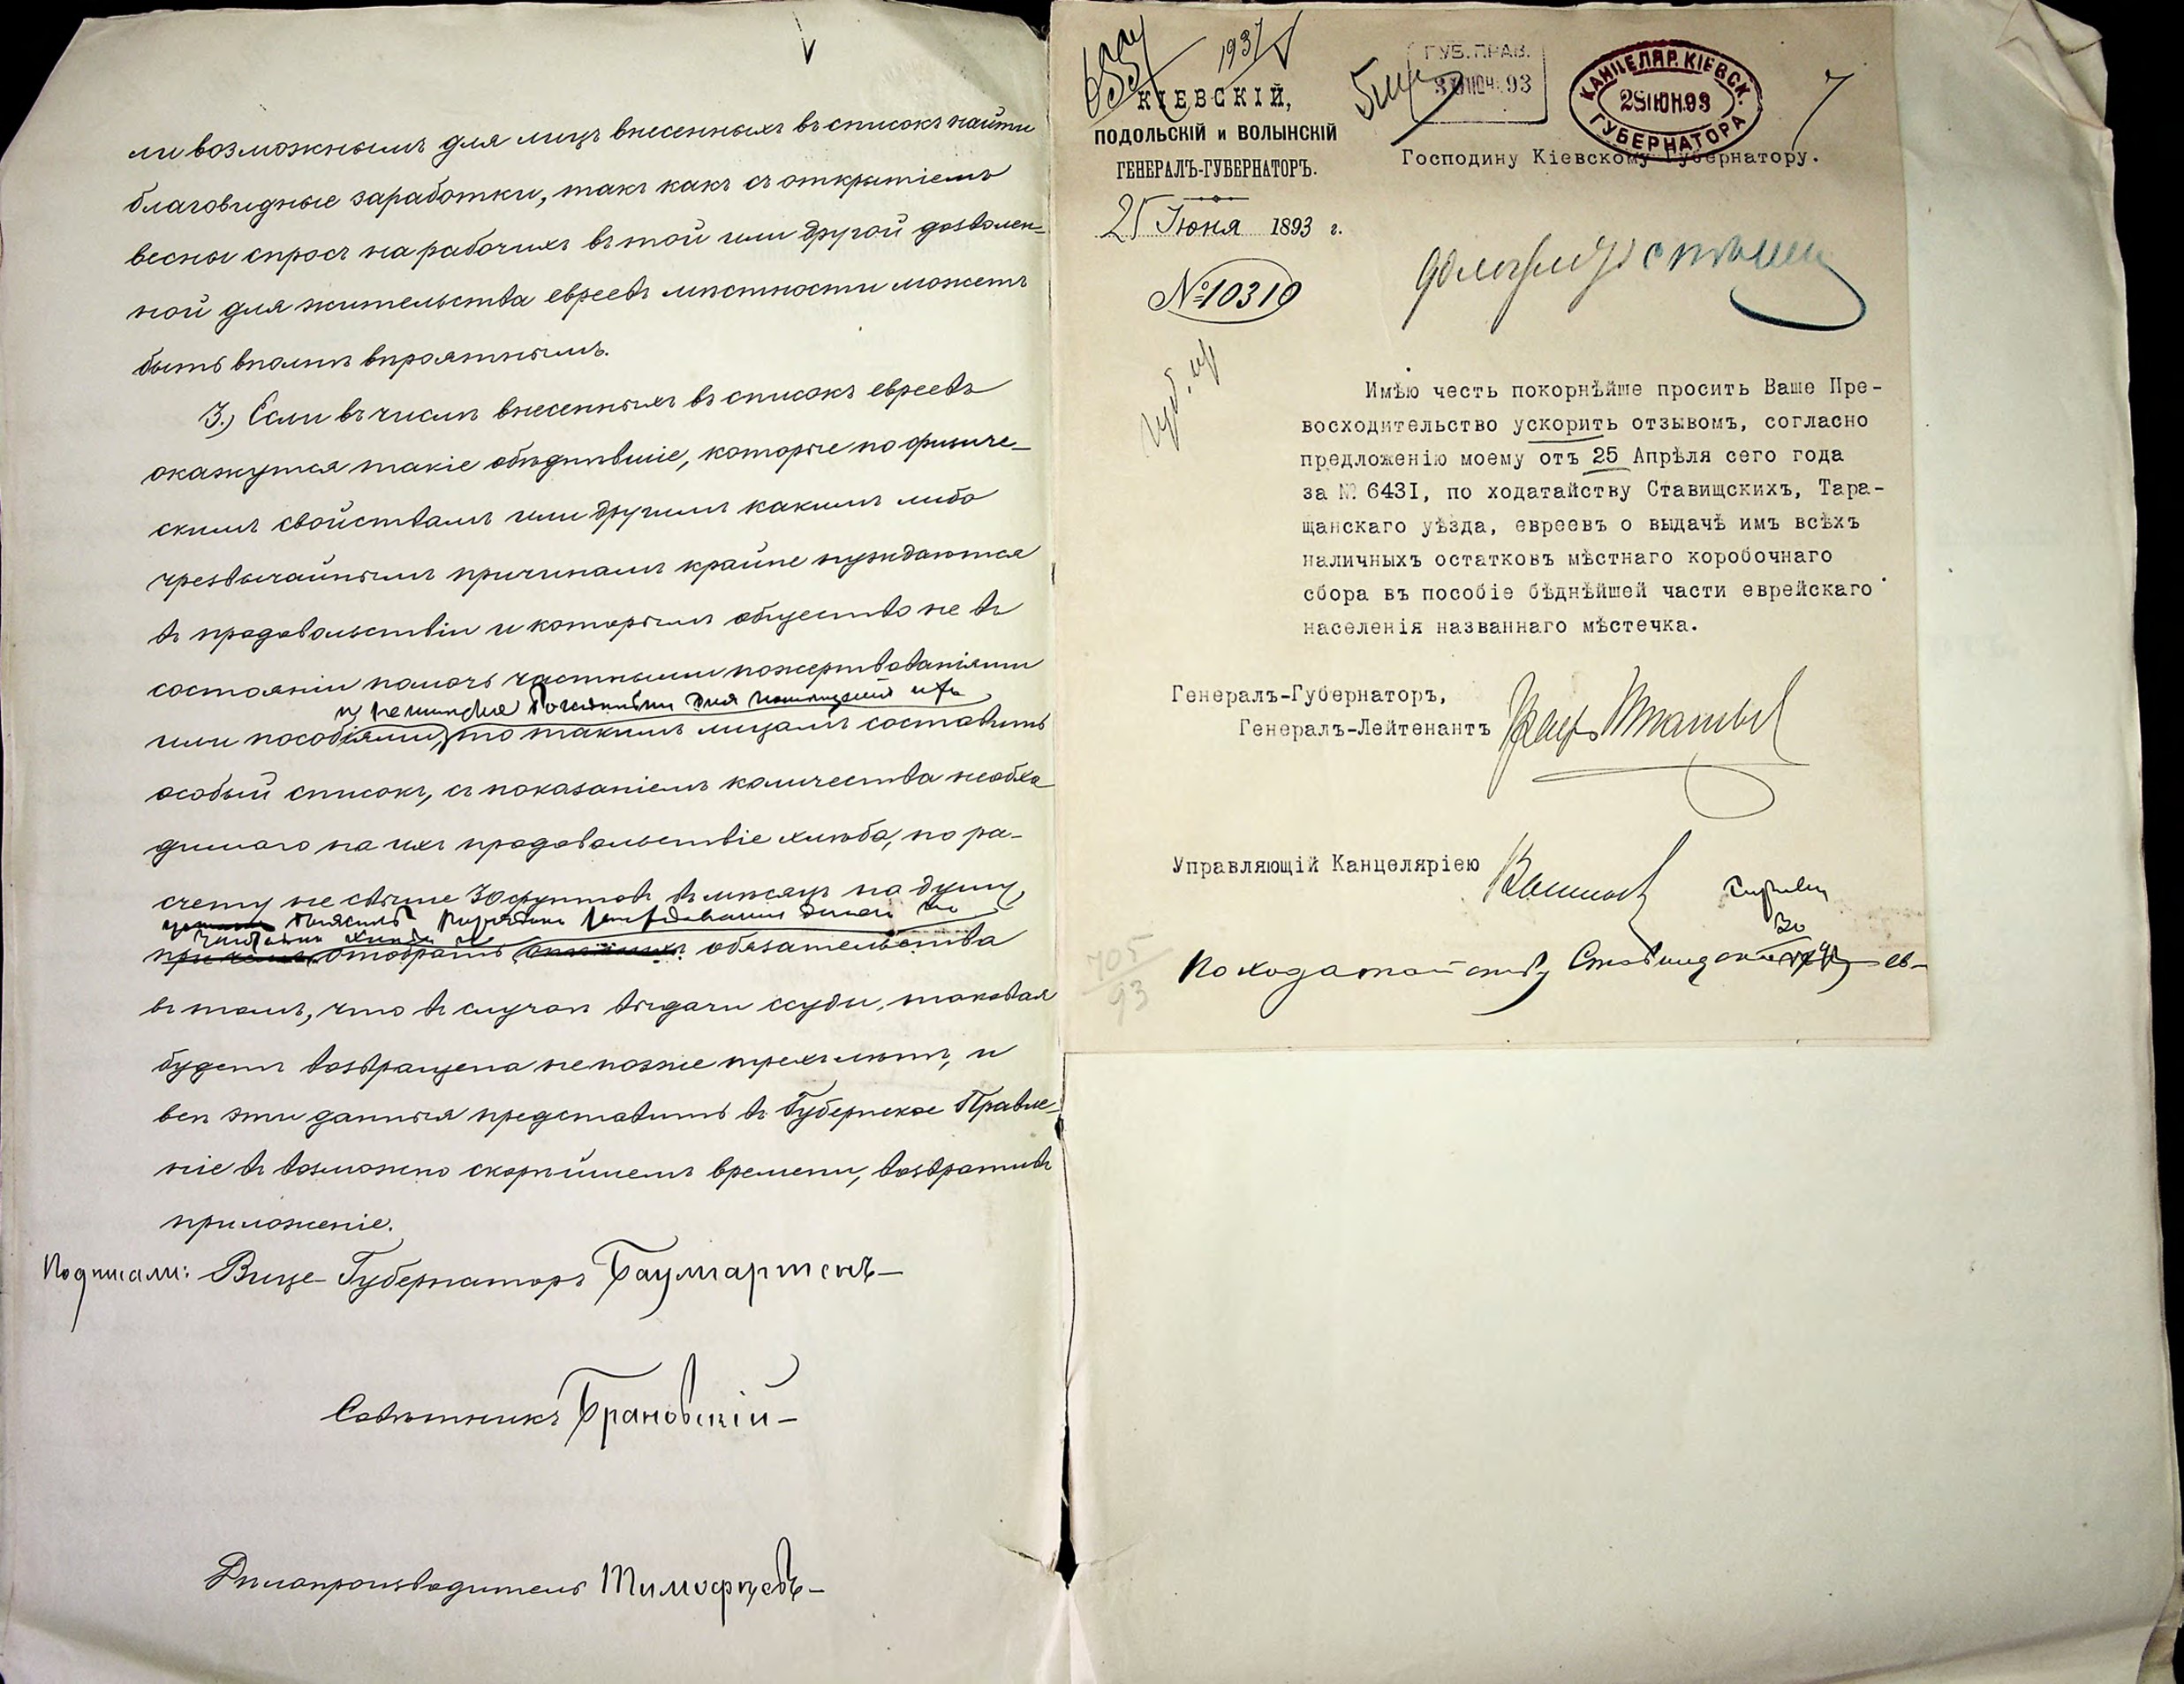 ли возможнымъ для лицъ внесенныхъ въ списокъ найти
благовидные заработки, такъ какъ съ открытіемъ
весны спросъ на рабочихъ въ той или другой дозволен=
ной для жительства евреевъ мѣстности можетъ
быть вполнѣ вѣроятнымъ.
3.) Если въ числѣ внесенныхъ въ списокъ евреевъ
окажутся такіе обѣднѣвшіе, которые по физиче-
скимъ свойствамъ или другимъ какимъ либо
чрезвычайнымъ причинамъ крайне нуждаются
въ продовольствіи и которымъ общество не въ
состояніи помочь частными пожертвованіями
для помощенія ихъ
или пособіями, то такимъ лицамъ составить
особый списокъ, съ показаніемъ количества необхо
димаго на ихъ продовольствіе хлѣба, по ра-
счету не свыше 30 фунтовъ въ мѣсяцъ на душу,
отобрать обязательства
въ томъ, что въ случаѣ выдачи ссуды, таковая
будетъ возвращена не позже трехъ лѣтъ, и
всѣ эти данныя представить въ Губернское Правле-
ніе въ возможно скорѣйшемъ времени, возвративъ
приложеніе.
Подписали: Вице-Губернаторъ Баумгартенъ-
Совѣтникъ Грановскій-
Дѣлопроизводитель Тимофѣевъ-
1937
КІЕВСКІЙ,
ПОДОЛЬСКІЙ и ВОЛЫНСКІЙ
ГЕНЕРАЛЪ-ГУБЕРНАТОРЪ.
25 Іюня 1893 г.
№ 10310
ГУБ. ПРАВ.
93
КАНЦЕЛЯР. КІЕВСК.
ІЮН. 93
ГУБЕРНАТОРА
7
Господину Кіевскому Губернатору.
Имѣю честь покорнѣйше просить Ваше Пре-
восходительство ускорить отзывомъ, согласно
предложенію моему отъ 25 Апрѣля сего года
за № 6431, по ходатайству Ставищскихъ, Тара-
щанскаго уѣзда, евреевъ о выдачѣ имъ всѣхъ
наличныхъ остатковъ мѣстнаго коробочнаго
сбора въ пособіе бѣднѣйшей части еврейскаго
населенія названнаго мѣстечка.
Генералъ-Губернаторъ,
Генералъ-Лейтенантъ
Управляющій Канцеляріею
705
93
По ходатайству